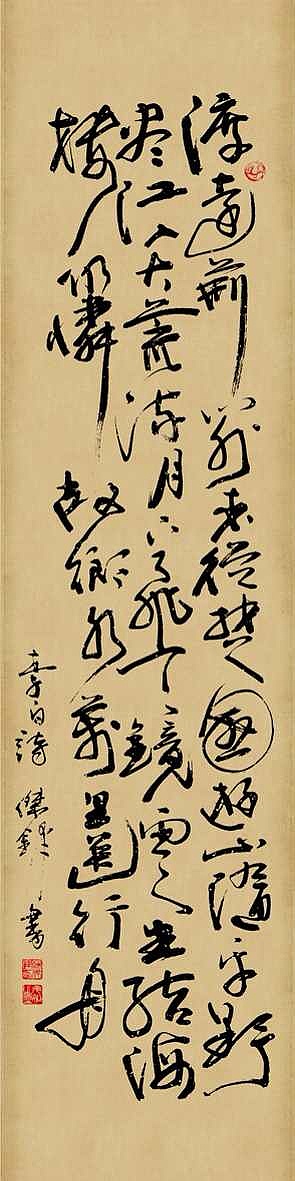 渡遠荊門外來從楚國遊山隨平野
尽江入大荒流月下飛天鏡雲生結海
樓仍憐故鄉水萬里送行舟
李白詩 書